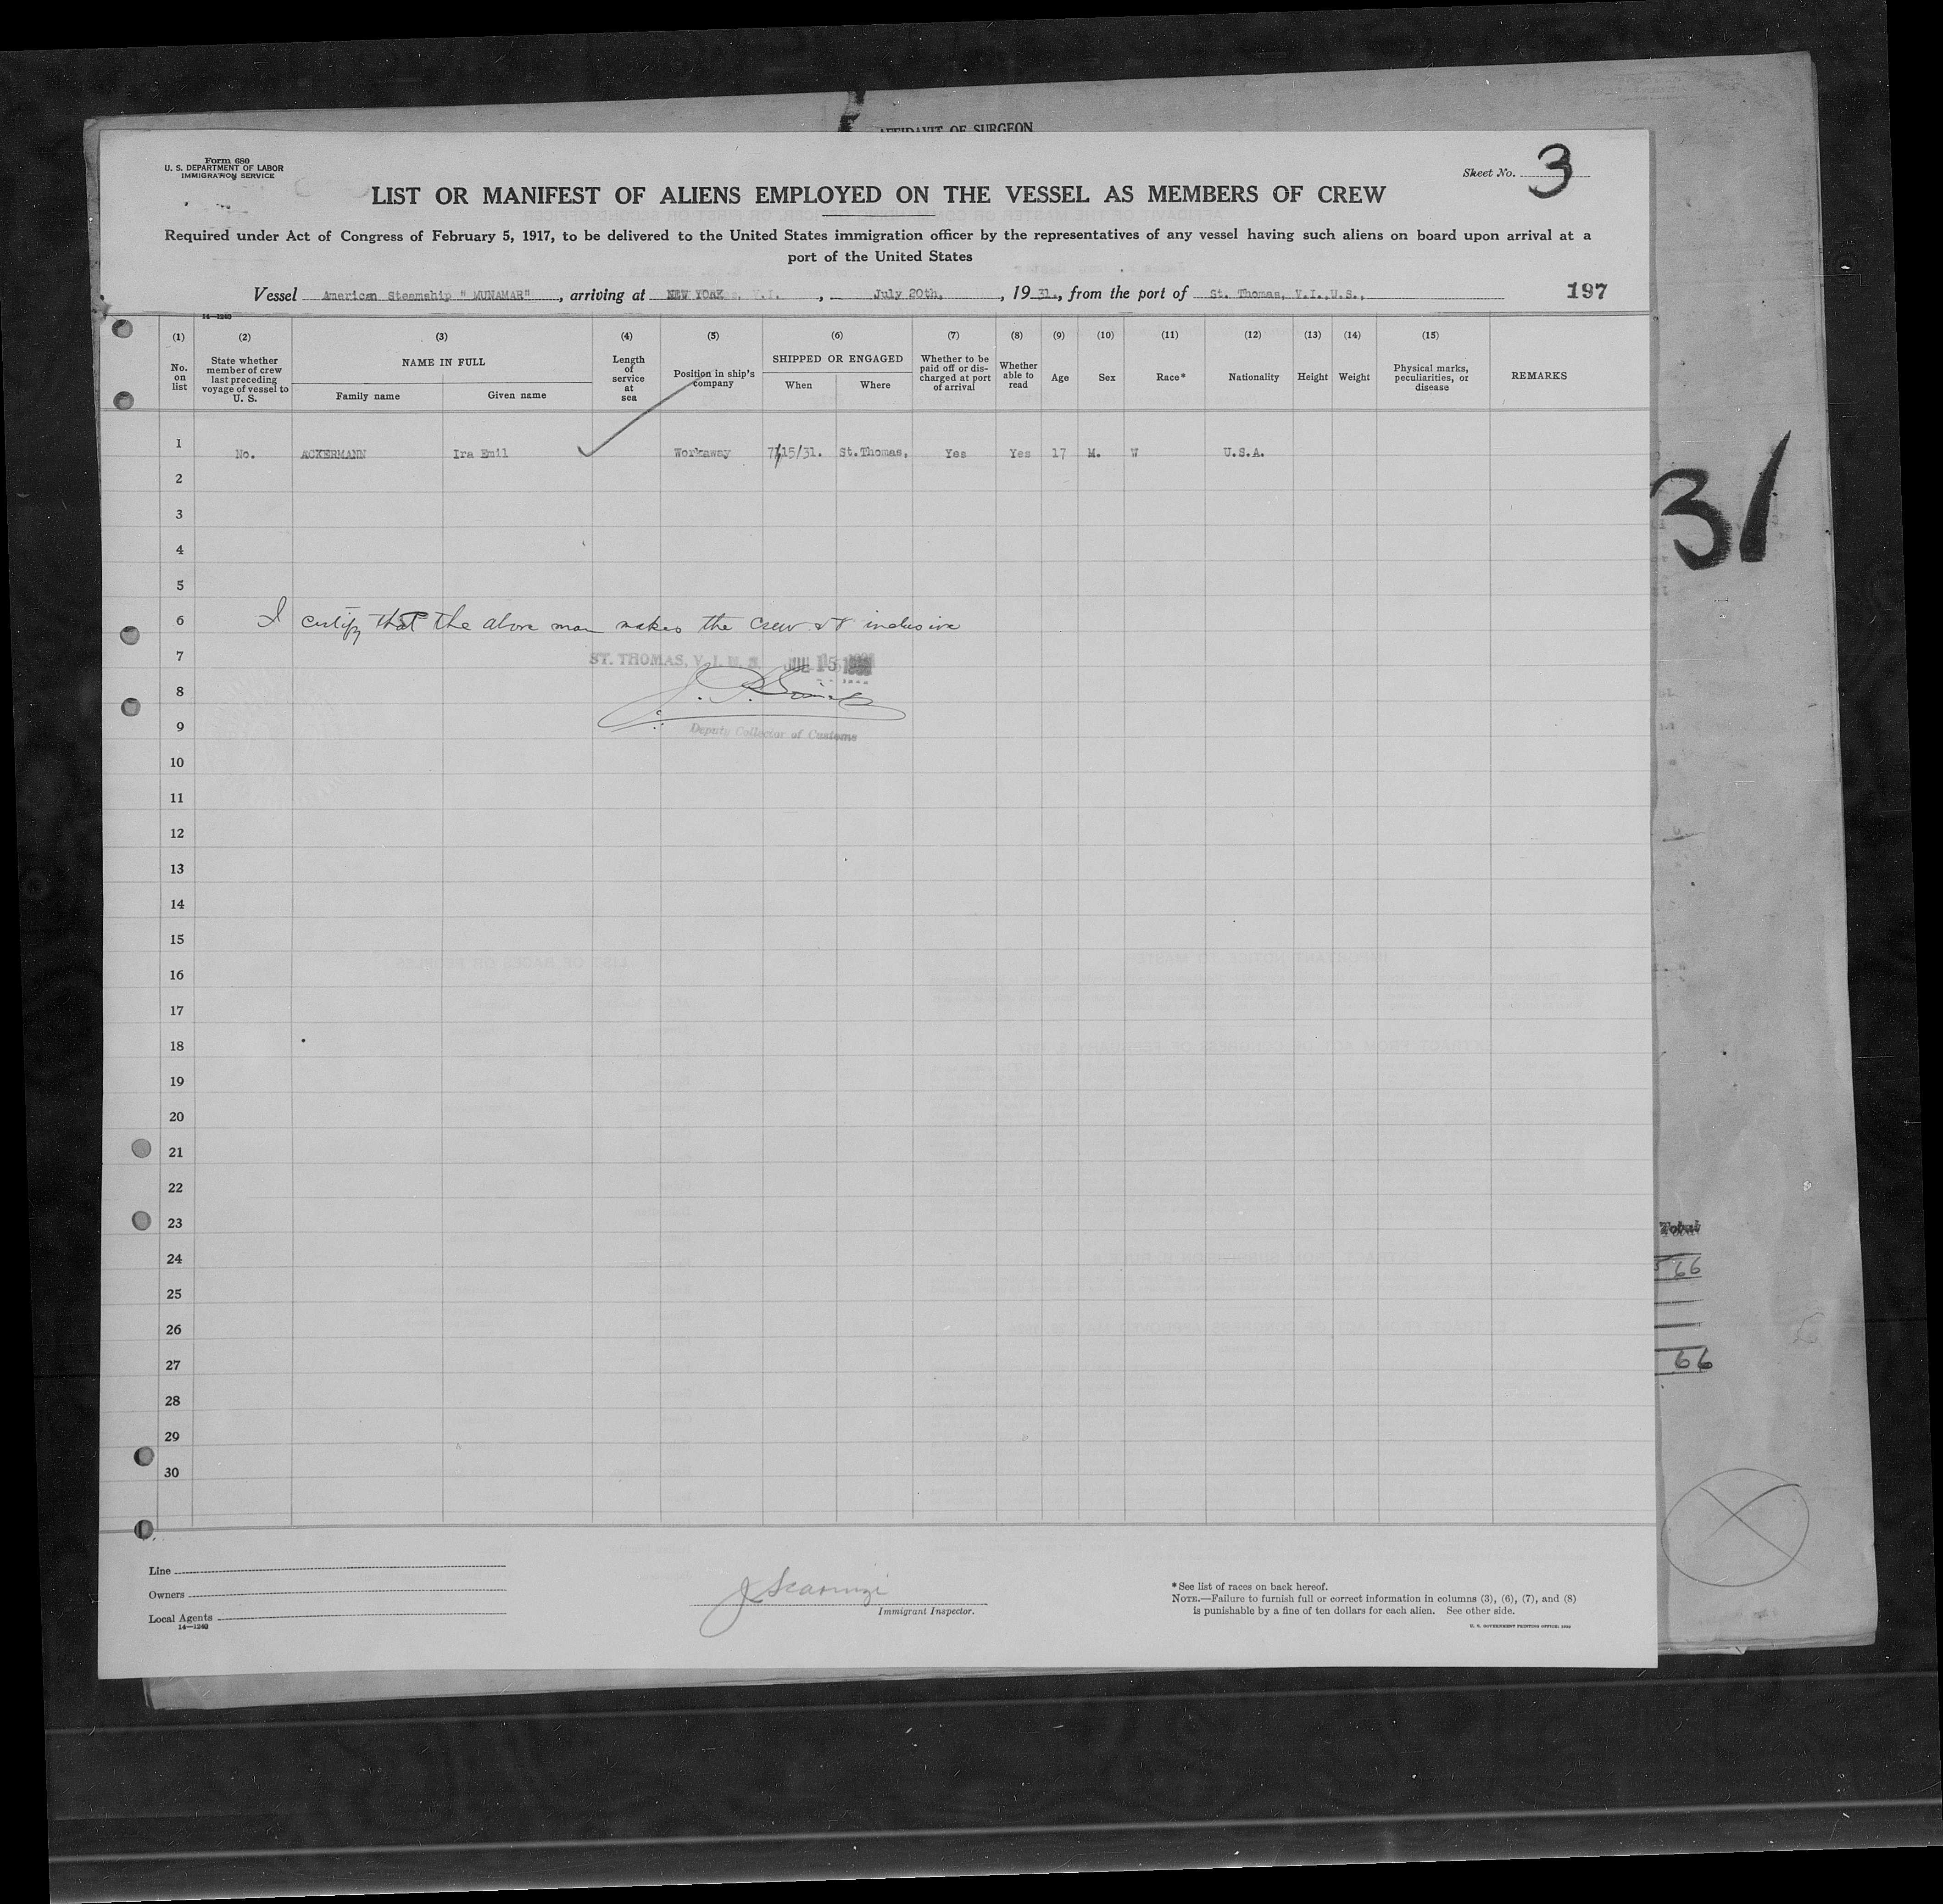 AFFIDAVIT OF SURGEON
Form 680
U. S. DEPARTMENT OF LABOR
IMMIGRATION SERVICE
Sheet No. 3
LIST OR MANIFEST OF ALIENS EMPLOYED ON THE VESSEL AS MEMBERS OF CREW
Required under Act of Congress of February 5, 1917, to be delivered to the United States immigration officer by the representatives of any vessel having such aliens on board upon arrival at a
port of the United States
Vessel American Steamship "MUNAMAR", arriving at NEW YORK, July 20th, 1931, from the port of St. Thomas, V.I.,U.S., 197
14—1240
(1) (2) (3) (4) (5) (6) (7) (8) (9) (10) (11) (12) (13) (14) (15)
No. on list
State whether member of crew last preceding voyage of vessel to U. S.
NAME IN FULL
Family name Given name
Length of service at sea
Position in ship's company
SHIPPED OR ENGAGED
When Where
Whether to be paid off or discharged at port of arrival
Whether able to read
Age
Sex
Race*
Nationality
Height
Weight
Physical marks, peculiarities, or disease
REMARKS
1 No. ACKERMANN Ira Emil Workaway 7/15/31. St.Thomas, Yes Yes 17 M. W U.S.A.
2
3
4
5
6 I certify that the above man makes the crew inclusive
7 ST. THOMAS, V. I. U. S. JUL 15
8
9 Deputy Collector of Customs
10
11
12
13
14
15
16
17
18
19
20
21
22
23
24
25
26
27
28
29
30
31
Total
66
66
Line
Owners
Local Agents
14—1240
Immigrant Inspector.
*See list of races on back hereof.
NOTE.—Failure to furnish full or correct information in columns (3), (6), (7), and (8)
is punishable by a fine of ten dollars for each alien. See other side.